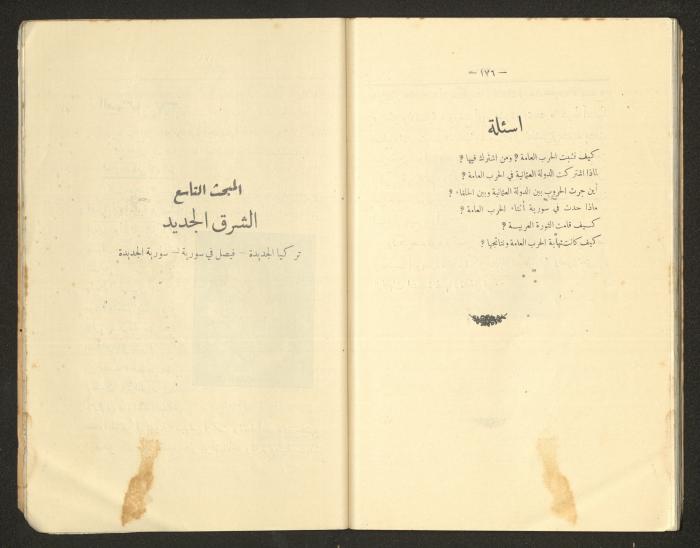 — ١٧٦ —
اسئلة
كيف نشبت الحرب العامة ؟ ومن اشترك فيها ؟
لماذا اشتركت الدولة العثمانية في الحرب العامة ؟
أين جرت الحروب بين الدولة العثمانية وبين الحلفاء ؟
ماذا حدث في سورية أثناء الحرب العامة ؟
كيف قامت الثورة العربية ؟
كيف كانت نهاية الحرب العامة ونتائجها ؟
المبحث التاسع
الشرق الجديد
تركيا الجديدة — فيصل في سورية — سورية الجديدة